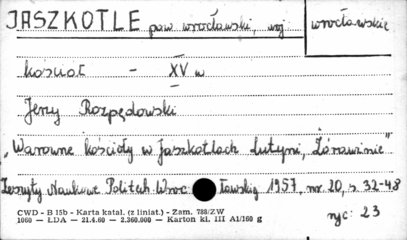 JASZKOTLE pow wrocławski, woj wrocławskie
kościoł - XV w
Jerzy Rozpędowski
„Warowne kościoły w Jaszkotlach Lutyni, Żórawinie"
Zeszyty Naukowe Politech. Wroc ławskiej 1957, nr. 20, s. 32-48
CWD - B 15b - Karta katal. (z liniat.) - Zam. 788/ZW
1060 — LDA — 21.4.60 — 2.360.000 — Karton kl. III A1/160 g
ryc: 23